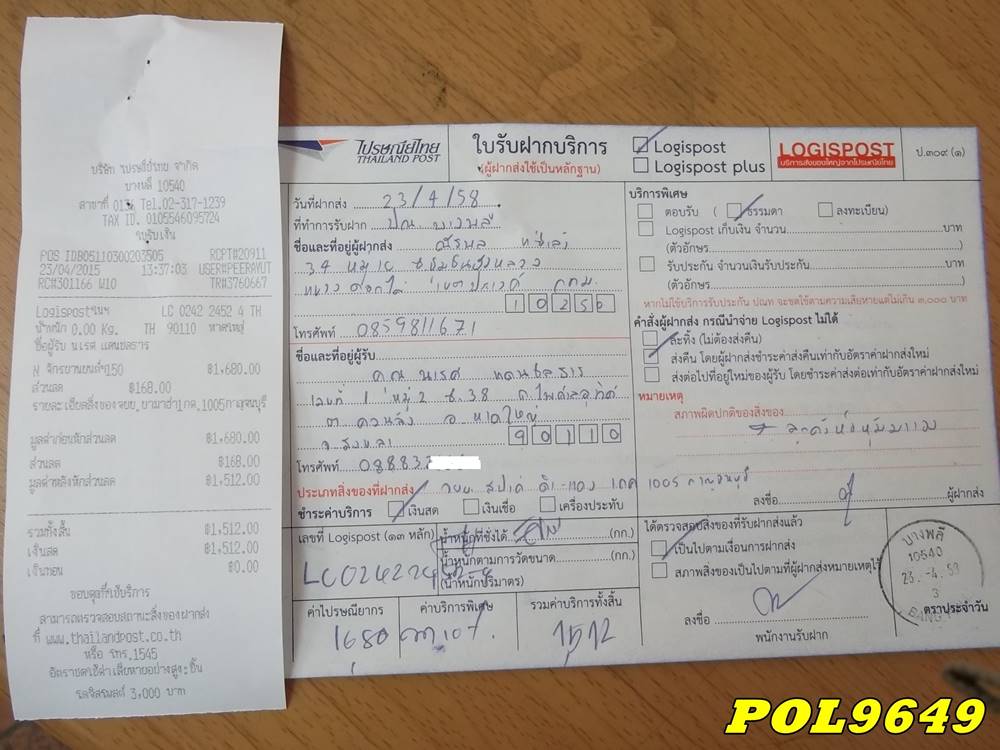 บริษัท ไปรษณีย์ไทย จำกัด
บางพลี 10540
สาขาที่ 0136 Tel.02-317-1239
TAX ID. 0105546095724
ใบรับเงิน
POS IDB05110300203505 RCPT#20911
23/04/2015 13:37:03 USER#PEERAYUT
RC#301166 W10 TR#3760667
Logispostในฯ LC 0242 2452 4 TH
น้ำหนัก 0.00 Kg. TH 90110 หาดใหญ่
ชื่อผู้รับ นเรศ แดนชลธาร
N จักรยานยนต์*150 ฿1,680.00
ส่วนลด ฿168.00
รายละเอียดสิ่งของ จยย.ยามาฮ่า1กด.1005กาญจนบุรี
มูลค่าก่อนหักส่วนลด ฿1,680.00
ส่วนลด ฿168.00
มูลค่าหลังหักส่วนลด ฿1,512.00
รวมทั้งสิ้น ฿1,512.00
เงินสด ฿1,512.00
เงินทอน ฿0.00
ขอบคุณที่ใช้บริการ
สามารถตรวจสอบสถานะสิ่งของฝากส่ง
ที่ www.thailandpost.co.th
หรือ โทร.1545
อัตราชดใช้ค่าเสียหายอย่างสูง:ชิ้น
โลจิสโพสต์ 3,000 บาท
ไปรษณีย์ไทย
THAILAND POST
ใบรับฝากบริการ
(ผู้ฝากส่งใช้เป็นหลักฐาน)
Logispost
Logispost plus
LOGISPOST
บริการส่งของใหญ่จากไปรษณีย์ไทย
ป.๓๐๙ (๑)
วันที่ฝากส่ง 23/4/58
ที่ทำการรับฝาก ปณ บางพลี
ชื่อและที่อยู่ผู้ฝากส่ง
34 หมู่
กทม
10250
โทรศัพท์ 0859811671
ชื่อและที่อยู่ผู้รับ
คุณ นเรศ แดนชลธาร
เลขที่ 1 หมู่ 2 ซ.38
ต ควนลัง อ หาดใหญ่
จ สงขลา 90110
โทรศัพท์ 08883
ประเภทสิ่งของที่ฝากส่ง จยย 1005 กาญจนบุรี
ชำระค่าบริการ เงินสด เงินเชื่อ เครื่องประทับ
เลขที่ Logispost (๑๓ หลัก) น้ำหนักที่ชั่งได้ (กก.)
น้ำหนักตามการวัดขนาด (กก.)
(น้ำหนักปริมาตร)
ค่าไปรษณียากร ค่าบริการพิเศษ รวมค่าบริการทั้งสิ้น
1680 1512
บริการพิเศษ
ตอบรับ ( ธรรมดา ลงทะเบียน)
Logispost เก็บเงิน จำนวน บาท
(ตัวอักษร )
รับประกัน จำนวนเงินรับประกัน บาท
(ตัวอักษร )
หากไม่ใช้บริการรับประกัน ปณท จะชดใช้ตามความเสียหายแต่ไม่เกิน ๓,๐๐๐ บาท
คำสั่งผู้ฝากส่ง กรณีนำจ่าย Logispost ไม่ได้
ละทิ้ง (ไม่ต้องส่งคืน)
ส่งคืน โดยผู้ฝากส่งชำระค่าส่งคืนเท่ากับอัตราค่าฝากส่งใหม่
ส่งต่อไปที่อยู่ใหม่ของผู้รับ โดยชำระค่าส่งต่อเท่ากับอัตราค่าฝากส่งใหม่
หมายเหตุ
สภาพผิดปกติของสิ่งของ
ลงชื่อ ผู้ฝากส่ง
ได้ตรวจสอบสิ่งของที่รับฝากส่งแล้ว
เป็นไปตามเงื่อนการฝากส่ง
สภาพสิ่งของเป็นไปตามที่ผู้ฝากส่งหมายเหตุไว้
ลงชื่อ
พนักงานรับฝาก
บางพลี
10540
23.-4.58
3
ตราประจำวัน
POL9649